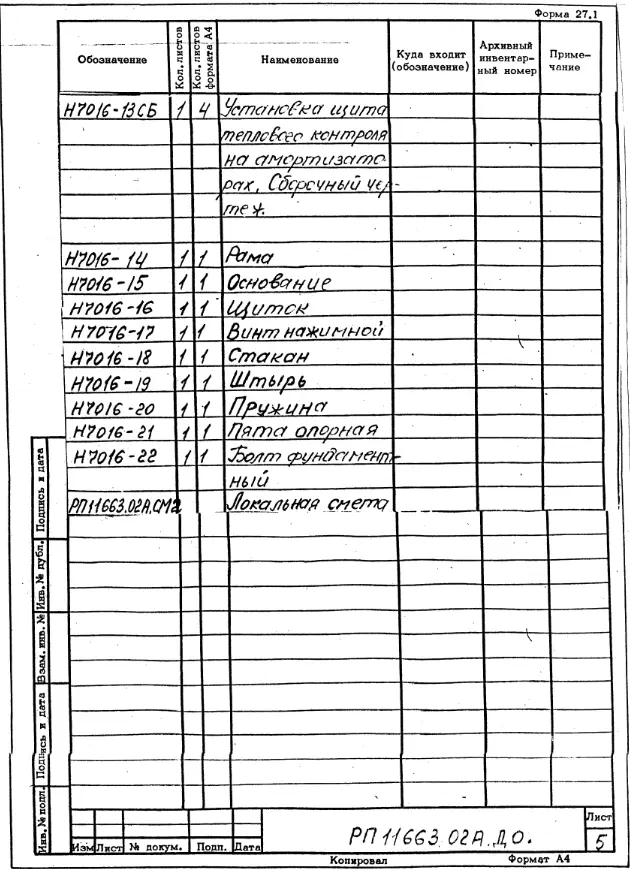 Форма 27.1
Обозначение Кол. листов Кол. листов формата А4 Наименование Куда входит (обозначение) Архивный инвентарный номер Примечание
Н7016-13СБ 1 4 Установка щита
теплового контроля
на амортизато-
рах, Сборочный чер-
теж.
Н7016-14 1 1 Рама
Н7016-15 1 1 Основание
Н7016-16 1 1 Щиток
Н7016-17 1 1 Винт нажимной
Н7016-18 1 1 Стакан
Н7016-19 1 1 Штырь
Н7016-20 1 1 Пружина
Н7016-21 1 1 Пята опорная
Н7016-22 1 1 Болт фундамент-
ный
РП11663.02А.СМ2 Локальная смета
Подпись и дата
Инв. № дубл.
Взам. инв. №
Подпись и дата
Инв. № подл.
Изм Лист № докум. Подп. Дата
РП 11663.02А.Д.О.
Лист
5
Копировал Формат А4